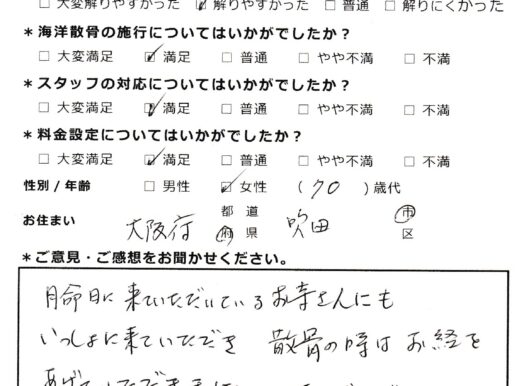 □ 大変解りやすかった ☑ 解りやすかった □ 普通 □ 解りにくかった
＊海洋散骨の施行についてはいかがでしたか？
□ 大変満足 ☑ 満足 □ 普通 □ やや不満 □ 不満
＊スタッフの対応についてはいかがでしたか？
□ 大変満足 ☑ 満足 □ 普通 □ やや不満 □ 不満
＊料金設定についてはいかがでしたか？
□ 大変満足 ☑ 満足 □ 普通 □ やや不満 □ 不満
性別 / 年齢 □ 男性 ☑ 女性 （ 70 ）歳代
お住まい 大阪府 都 道 府 県 吹田 市 区
＊ご意見・ご感想をお聞かせください。
月命日に来ていただいているお寺さんにも
いっしょに来ていただき 散骨の時はお経を
あげていただきまし